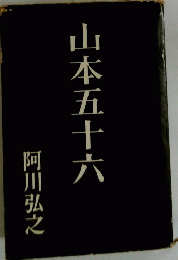 山本五十六
阿川弘之